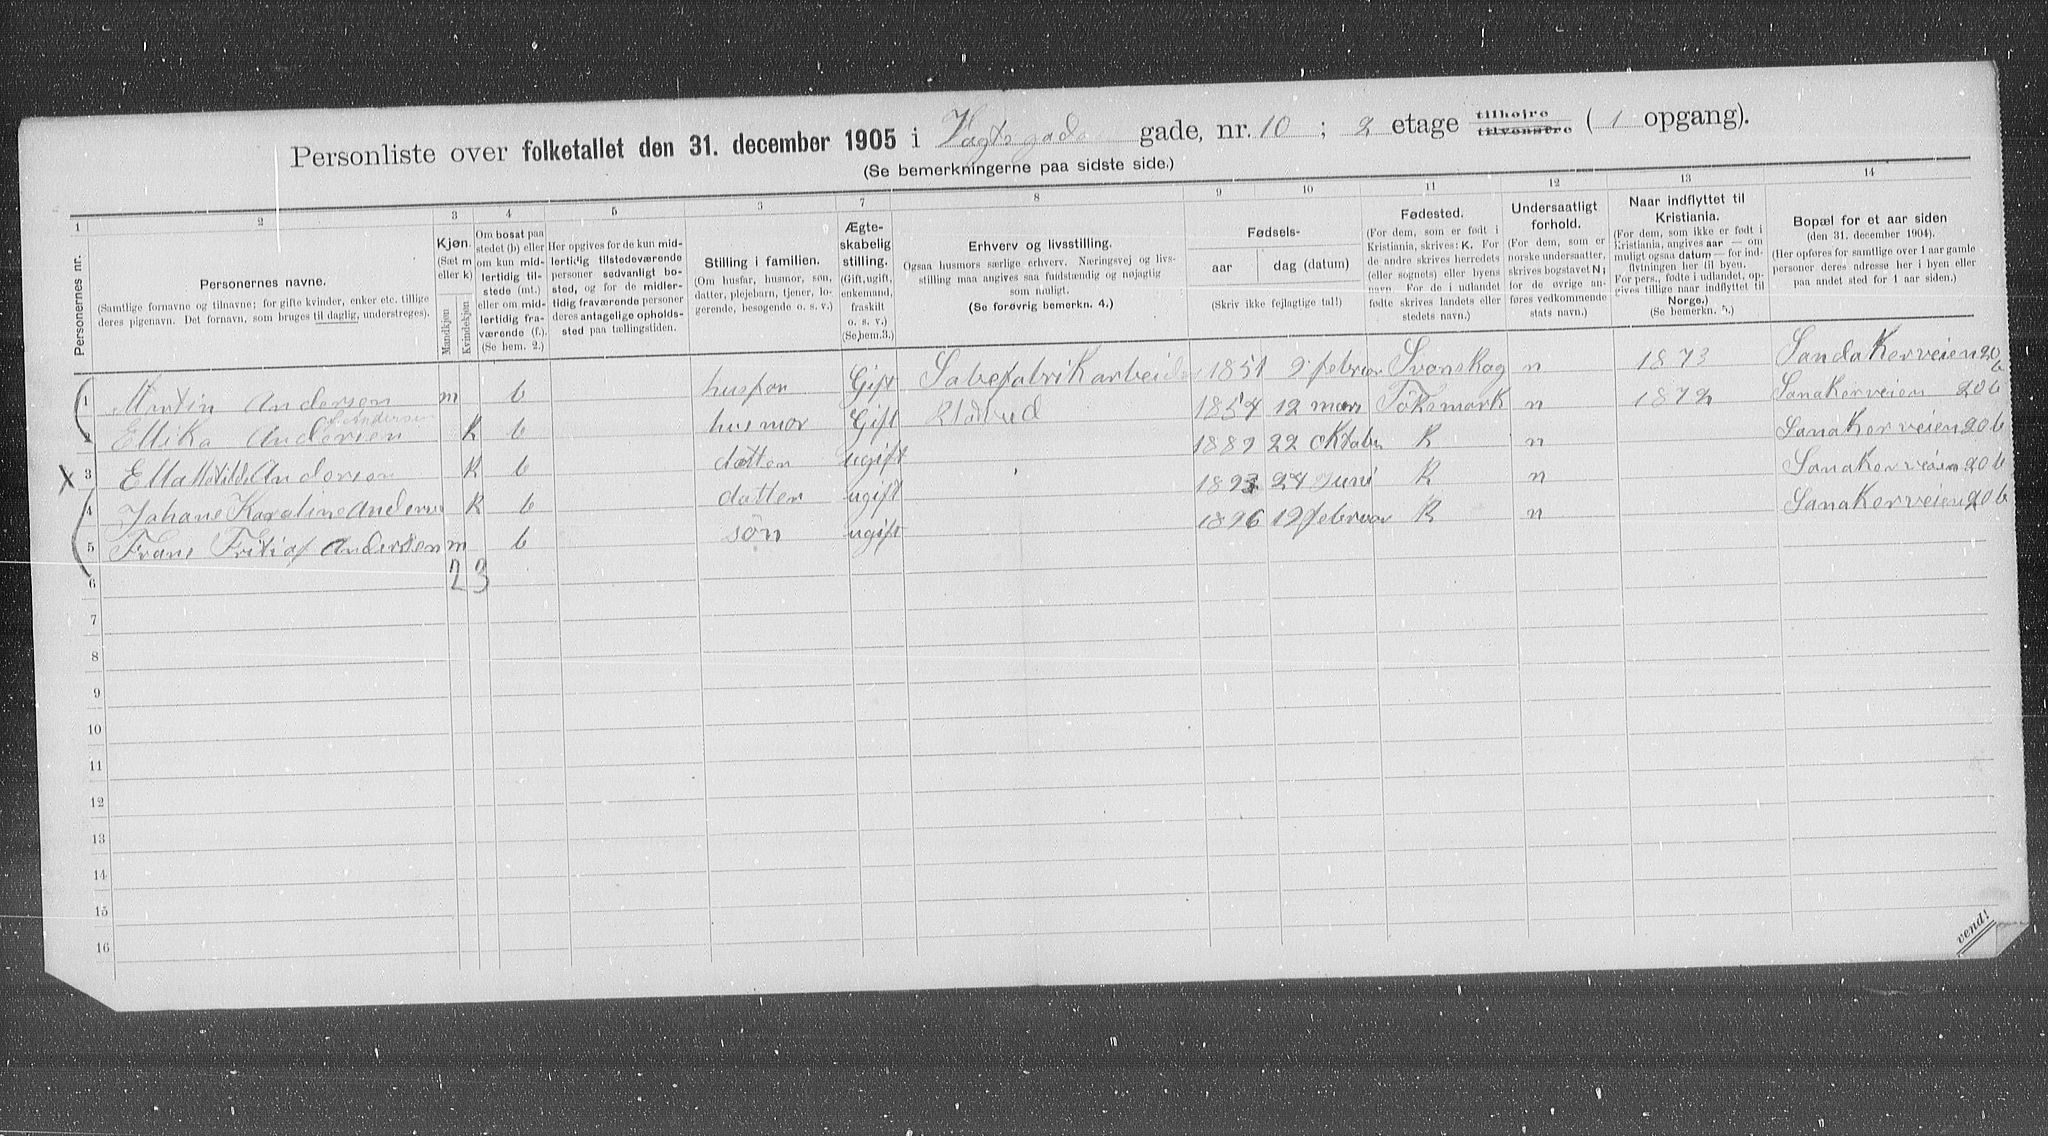 Personliste over folketallet den 31. december 1905 i Vagtsgade gade, nr. 10 ; 2 etage tilhøjre tilvenstre ( 1 opgang).
(Se bemerkningerne paa sidste side.)
1 2 3 4 5 6 7 8 9 10 11 12 13 14
Personernes nr.
Personernes navne.
(Samtlige fornavne og tilnavne; for gifte kvinder, enker etc. tillige
deres pigenavn. Det fornavn, som bruges til daglig, understreges).
Kjøn.
(Sæt m
eller k)
Mandkjøn
Kvindekjøn
Om bosat paa
stedet (b) eller
om kun mid-
lertidig til-
stede (mt.)
eller om mid-
lertidig fra-
værende (f.).
(Se bem. 2.)
Her opgives for de kun mid-
lertidig tilstedeværende
personer sedvanligt bo-
sted, og for de midler-
tidig fraværende personer
deres antagelige opholds-
sted paa tællingstiden.
Stilling i familien.
(Om husfar, husmor, søn,
datter, plejebarn, tjener, lo-
gerende, besøgende o. s. v.)
Ægte-
skabelig
stilling.
(Gift, ugift,
enkemand,
fraskilt
o. s. v.)
(Se bem. 3.)
Erhverv og livsstilling.
Ogsaa husmors særlige erhverv. Næringsvej og livs-
stilling maa angives saa fuldstændig og nøjagtig
som muligt.
(Se forøvrig bemerkn. 4.)
Fødsels-
aar dag (datum)
(Skriv ikke fejlagtige tal!)
Fødested.
(For dem, som er født i
Kristiania, skrives: K. For
de andre skrives herredets
(eller sognets) eller byens
navn. For de i udlandet
fødte skrives landets eller
stedets navn.)
Undersaatligt
forhold.
(For dem, som er
norske undersaatter,
skrives bogstavet N;
for de øvrige an-
føres vedkommende
stats navn.)
Naar indflyttet til
Kristiania.
(For dem, som ikke er født i
Kristiania, angives aar — om
muligt ogsaa datum — for ind-
flytningen her til byen.
For pers., fødte i udlandet, op-
gives tillige naar indflyttet til
Norge.)
(Se bemerkn. 5.)
Bopæl for et aar siden
(den 31. december 1904).
(Her opføres for samtlige over 1 aar gamle
personer deres adresse her i byen eller
paa andet sted for 1 aar siden.)
1 Martin Andersen m b husfar Gift Sabefabrikarbeider 1851 9 februar Svanskog n 1873 Sandakerveien 20 b
f. Andersen
2 Ellika Andersen K b husmor Gift 1854 12 mars Töksmark n 1872 Sanakerveien 20 b
X 3 Ella Matilde Andersen K b datter ugift 1889 22 oktober K n Sanakerveien 20 b
4 Johane Karoline Andersen K b datter ugift 1893 24 Juni K n Sanakerveien 20 b
5 Frans Fritiof Andersen m b sön ugift 1896 19 februar K n Sanakerveien 20 b
6 2 3
7
8
9
10
11
12
13
14
15
16
vend!